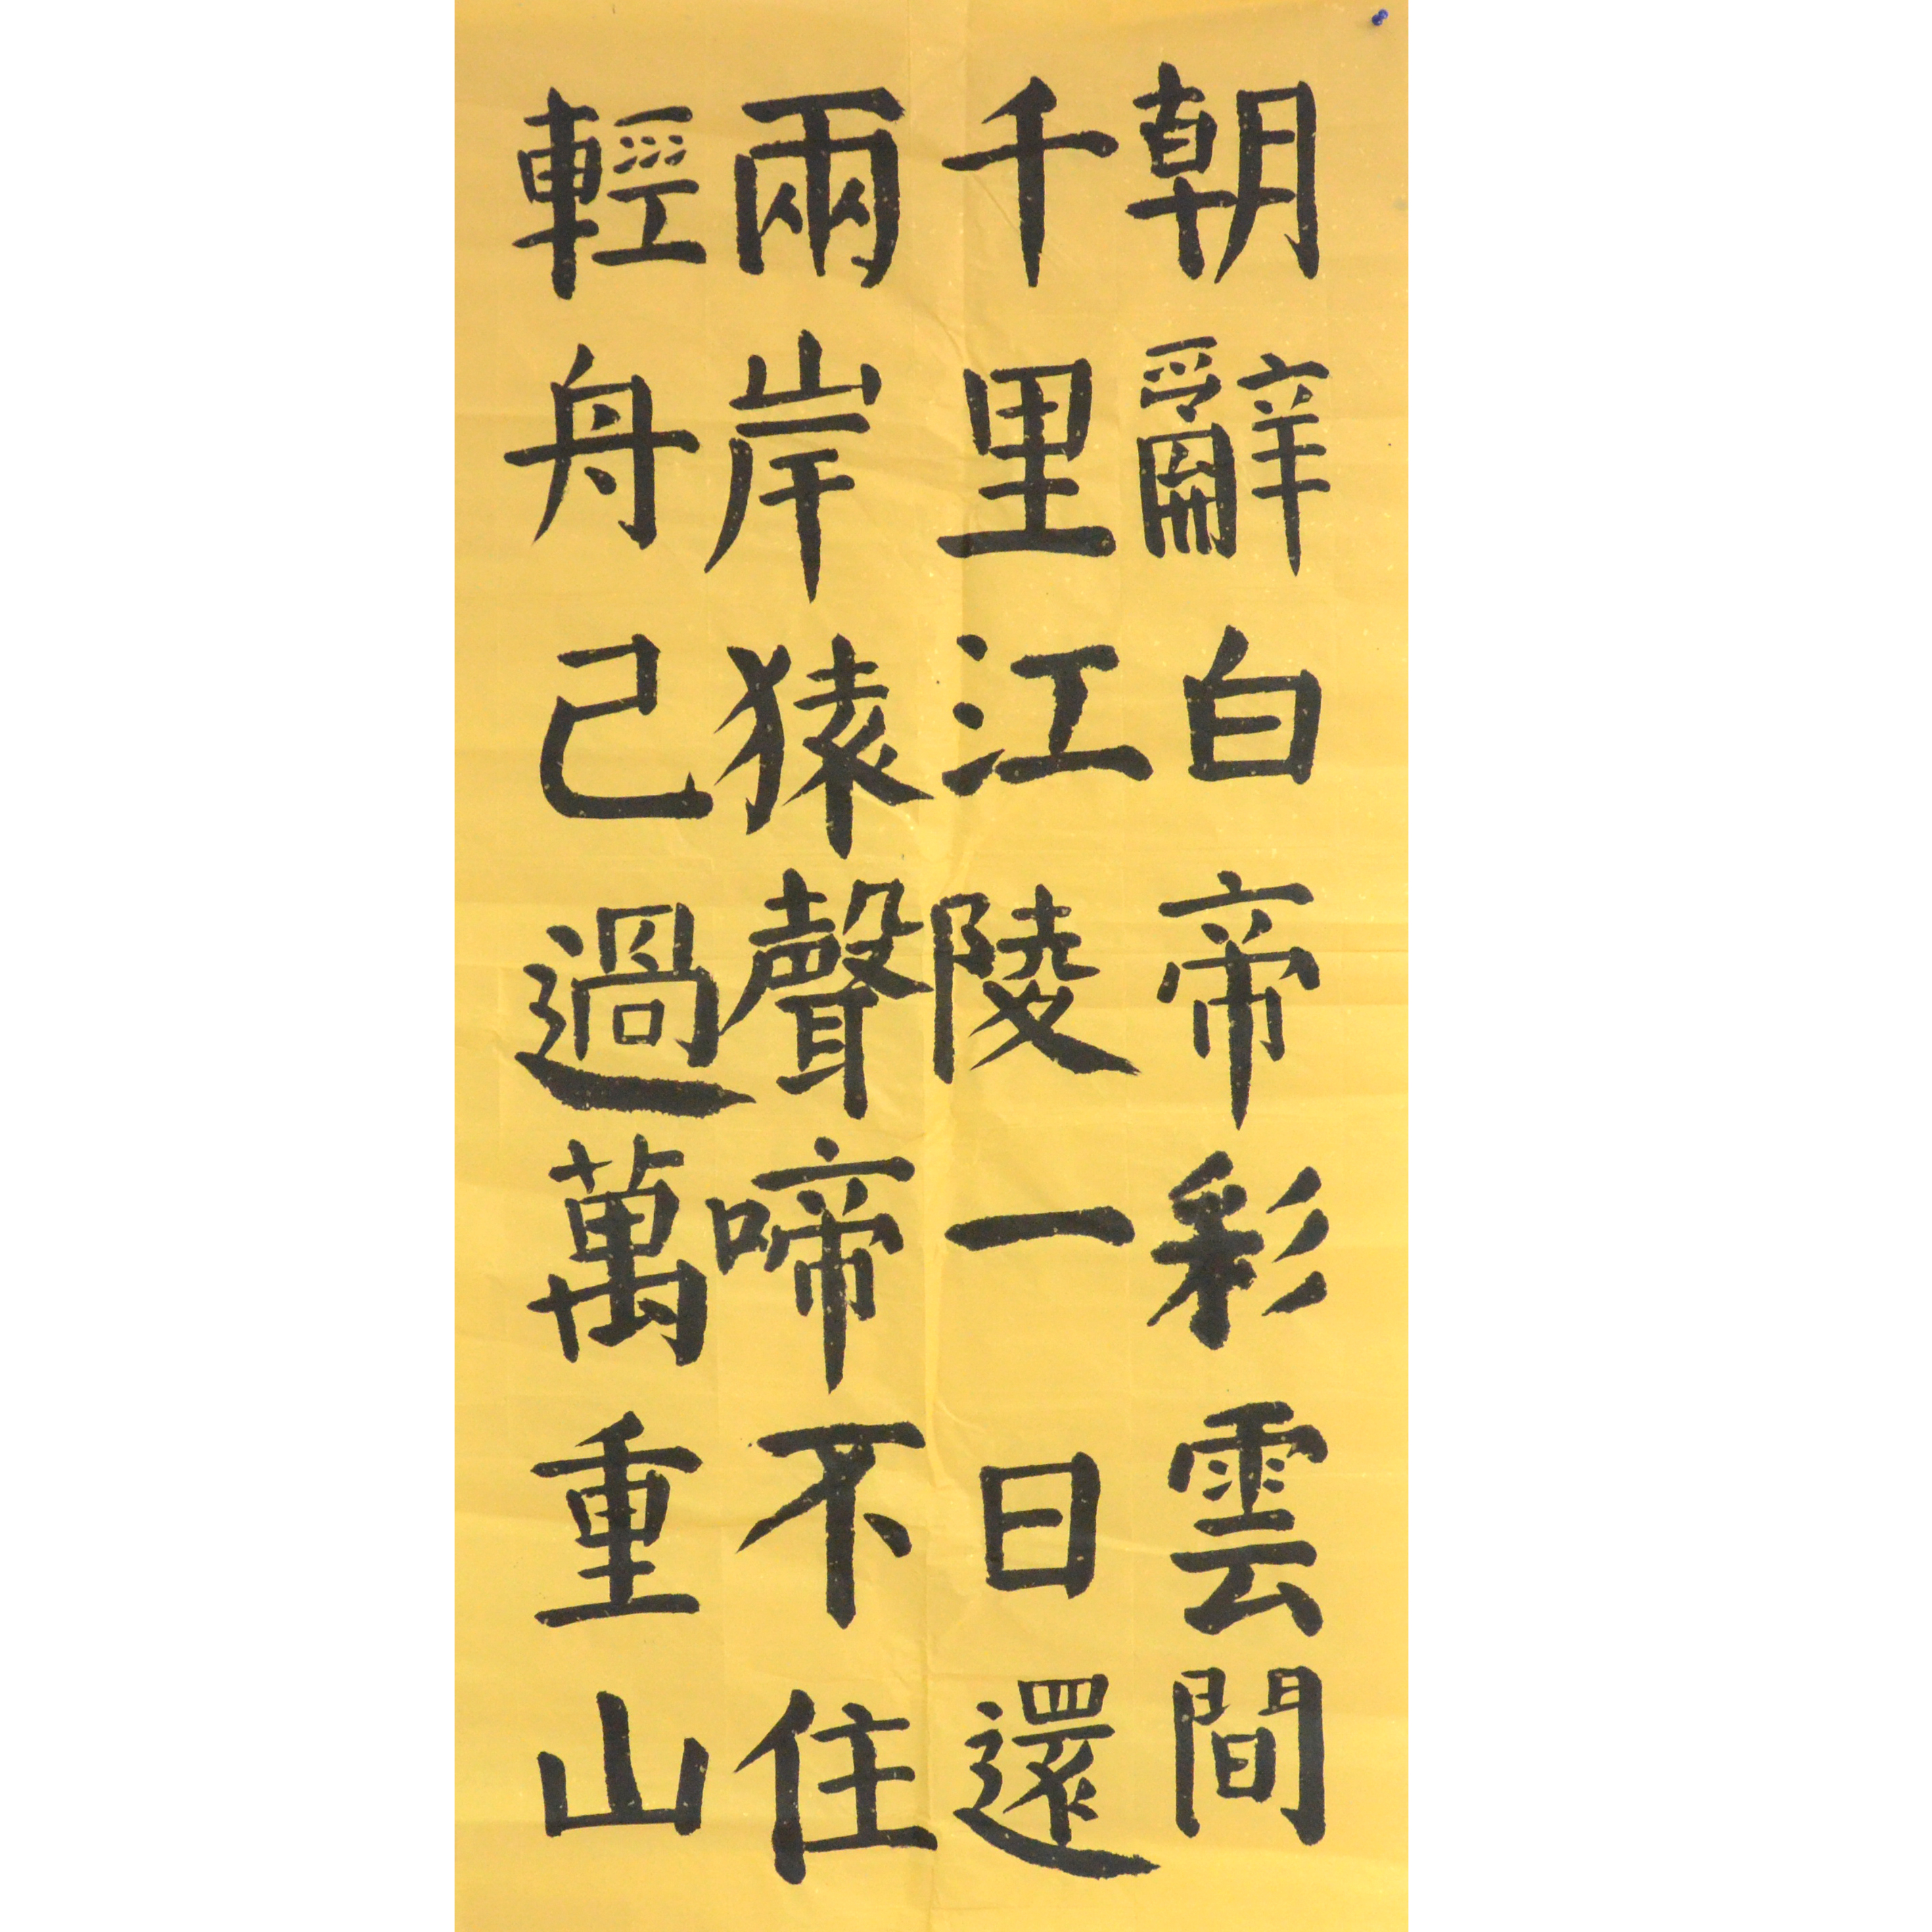 朝辭白帝彩雲間
千里江陵一日還
兩岸猿聲啼不住
輕舟己過萬重山